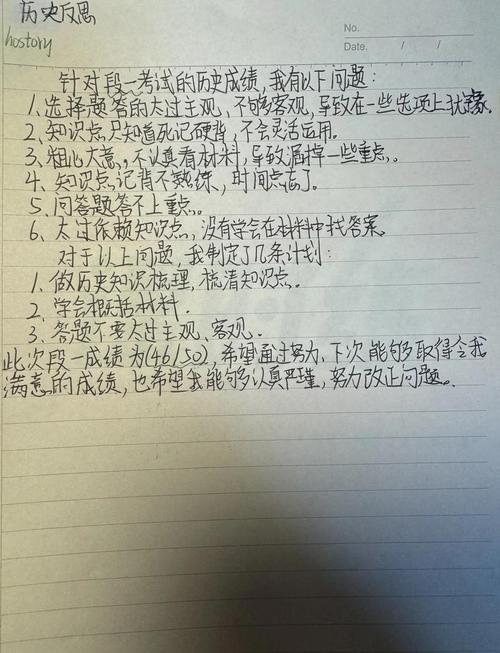 历史反思
hostory
No.
Date. / /
针对段一考试的历史成绩,我有以下问题:
1.选择题答的太过主观,不够客观,导致在一些选项上犹豫。
2.知识点只知道死记硬背,不会灵活运用。
3.粗心大意,不认真看材料,导致漏掉一些重点。
4、知识点记背不熟练,时间点忘了。
5.问答题答不上重点。
6.太过依赖知识点,没有学会在材料中找答案。
对于以上问题,我制定了几条计划:
1.做历史知识梳理,梳清知识点。
2.学会概括材料.
3.答题不要太过主观、客观.
此次段一成绩为(46/50),希望通过努力,下次能够取得令我
满意的成绩,也希望我能够认真严谨,努力改正问题。